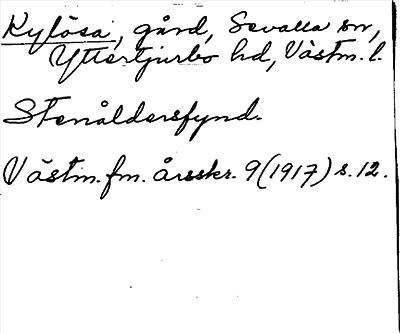 Kylösa, gård, Sevalla sn,
Yttertjurbo hd, Västm. l.
Stenåldersfynd.
Västm. fm. årsskr. 9 (1917) s. 12.